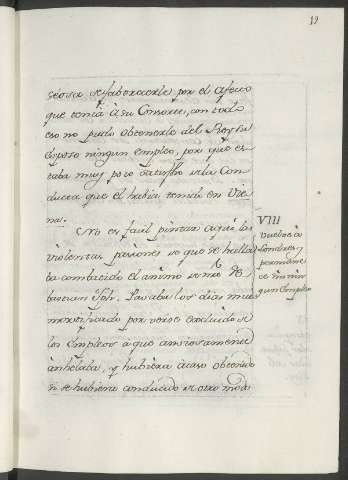 19
seosa de faborecerle por el afecto
que tenia à su Consorte, con todo
eso no pudo obtenerlo del Rey su
esposo ningun empleo, por que es-
taba muy poco satisfho de la Con-
ducta que el habia tenido en Vie-
na.
No es facil pintar aqui las
violentas pasiones de que se halla-
ba combatido el animo de
Pasaba los dias mui
mortificado por verse excluido de
los Empleos a que ansiosamente
anhelaba, y hubiera acaso obtenido
si se hubiera conducido de otro modo
VIII
Vuelve à
Londres y
permanece
sin nin-
gun Empleo